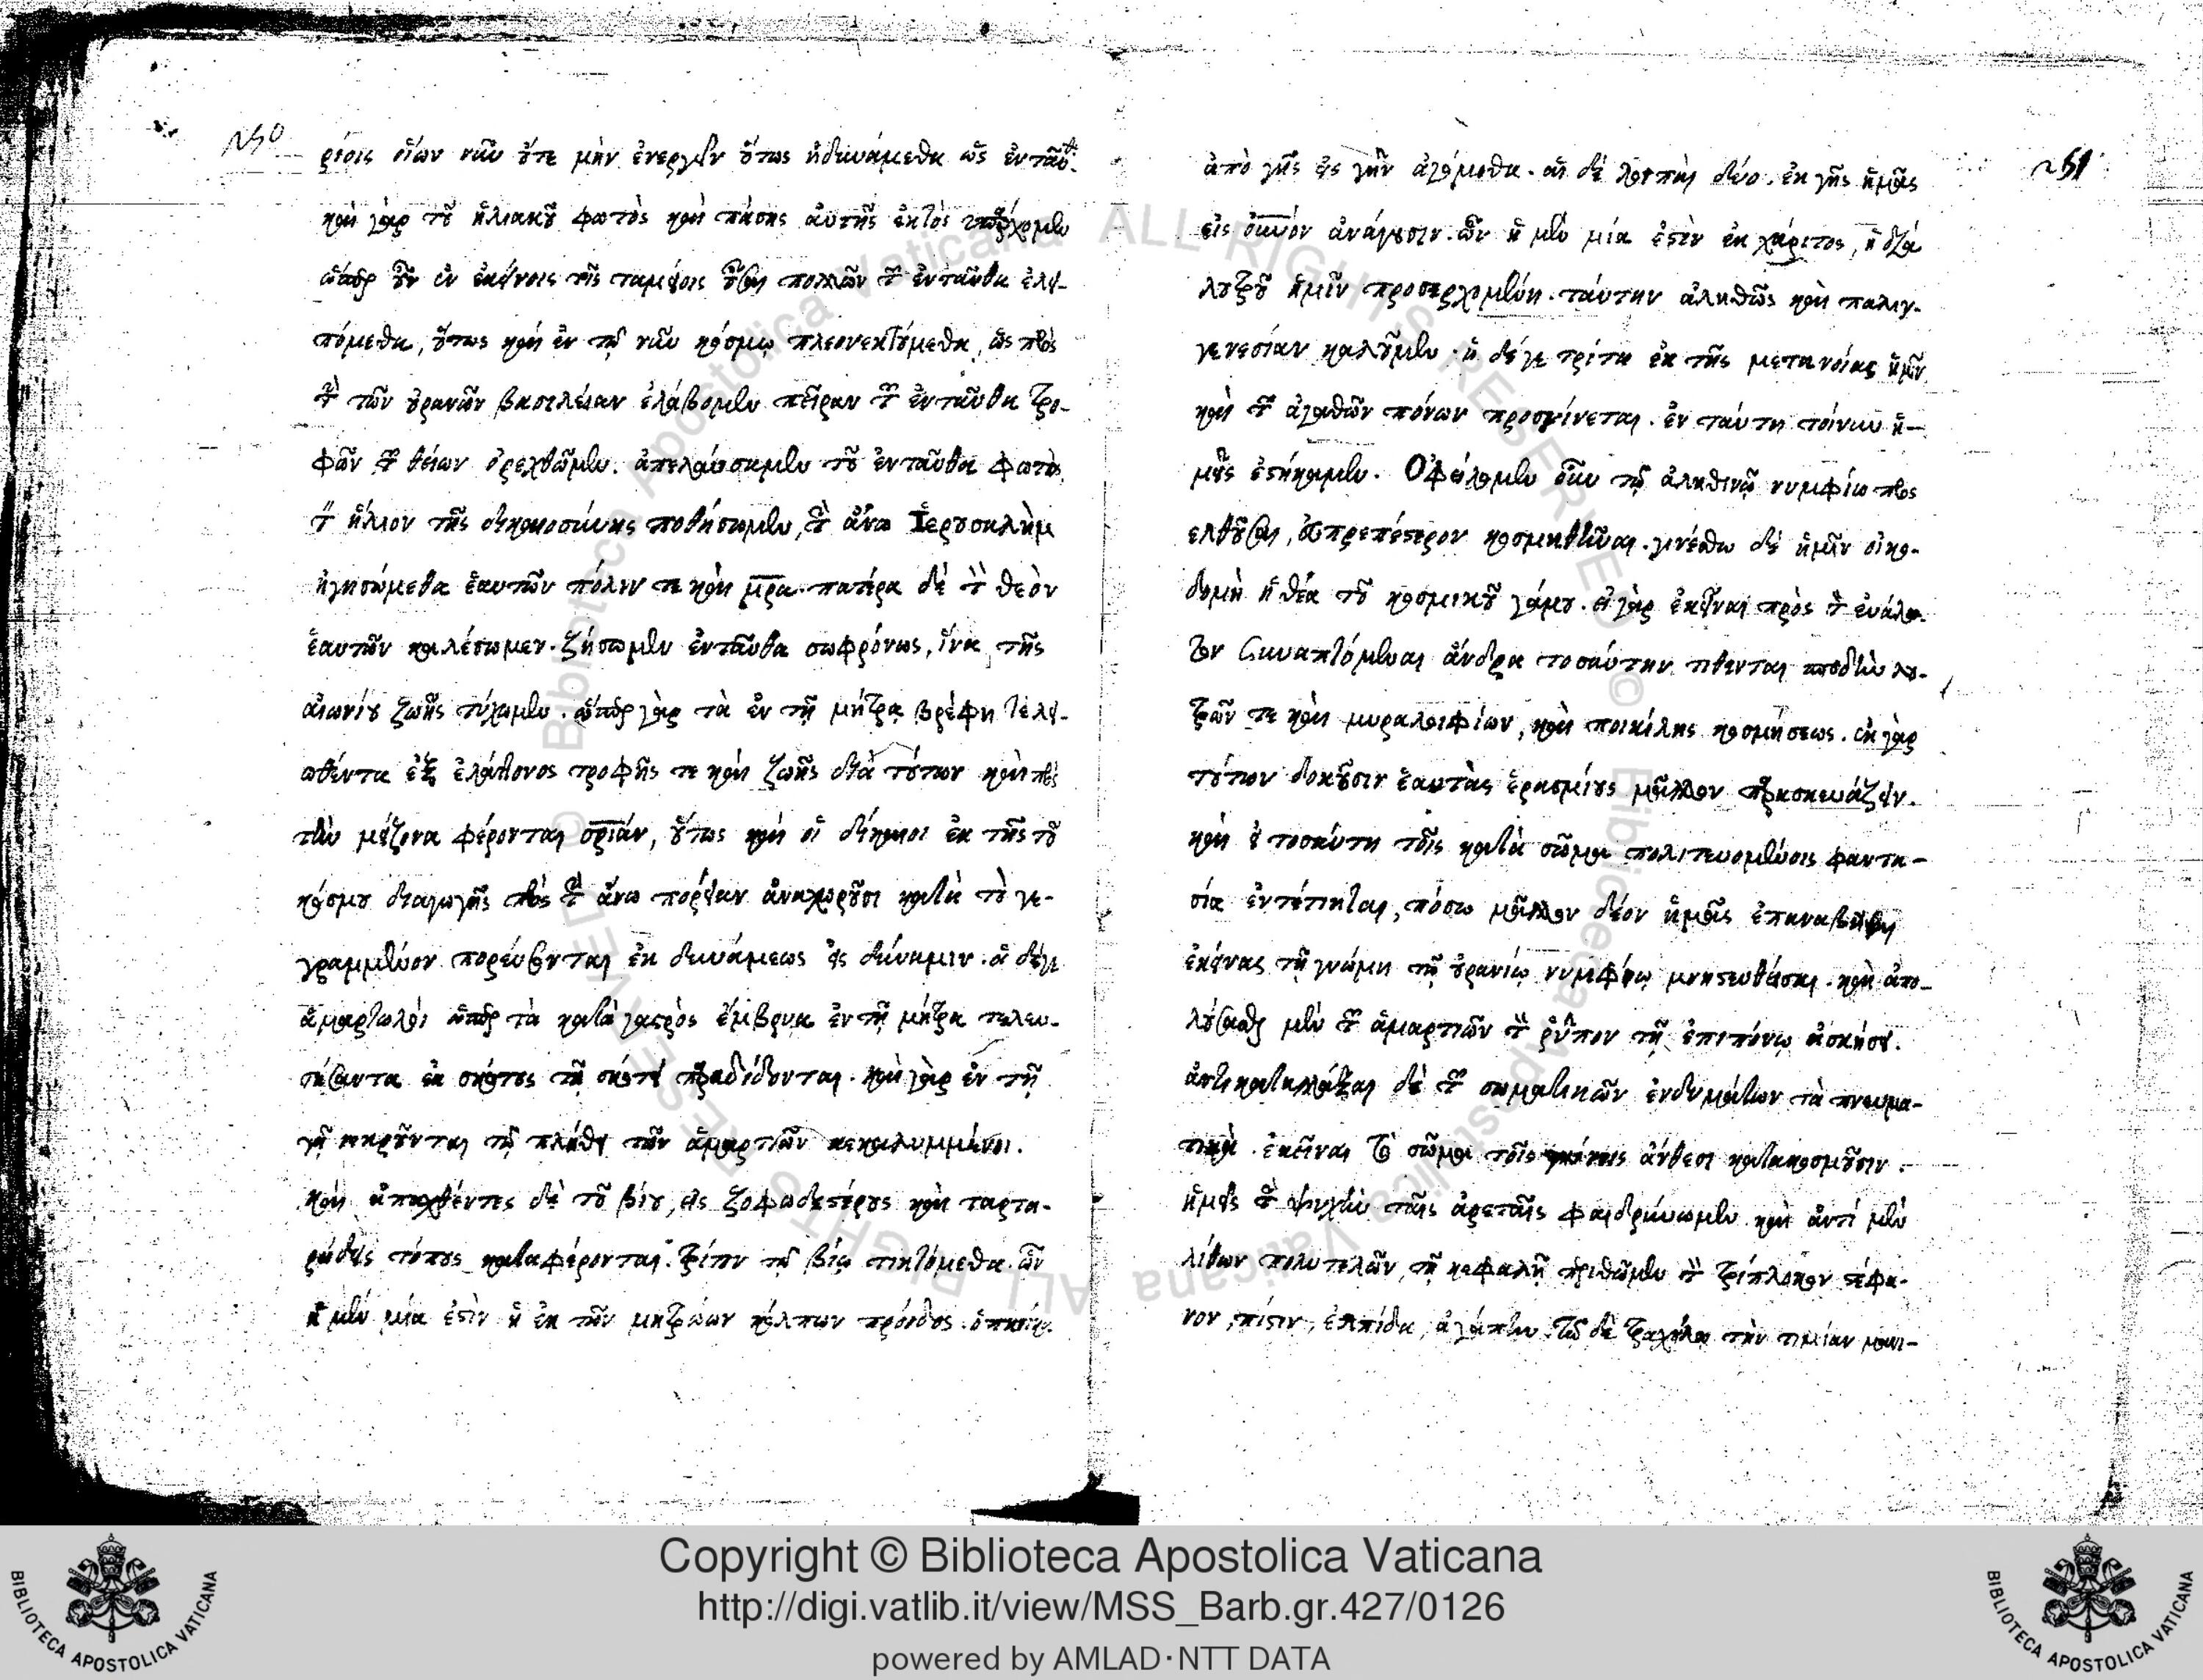 250
ρίοις οἴων νῦν οὔτε μὴν ἐνεργεῖν οὕτως ἠδυνάμεθα ὡς ἐνταῦθ.
καὶ γὰρ τοῦ ἡλιακοῦ φωτὸς καὶ πάσης αὐτῆς ἐκτὸς ὑπήρχομεν
ὥσπερ οὖν ἐν ἐκείνοις τοῖς ταμείοις οὖσαι πολλῶν τῶν ἐνταῦθα ἐλει-
πόμεθα, οὕτως καὶ ἐν τῷ νῦν κόσμῳ πλεονεκτούμεθα, ὡς πρὸς
τὴν τῶν οὐρανῶν βασιλείαν ἐλάβομεν πεῖραν τῶν ἐνταῦθα τρο-
φῶν τῶν θείων ὀρεχθῶμεν. ἀπελαύσαμεν τοῦ ἐνταῦθα φωτὸς
τὸν ἥλιον τῆς δικαιοσύνης ποθήσωμεν, τὴν ἄνω Ἱερουσαλὴμ
ἡγησώμεθα ἑαυτῶν πόλιν τε καὶ μρα. πατέρα δὲ τὸν θεὸν
ἑαυτῶν καλέσωμεν. ζήσωμεν ἐνταῦθα σωφρόνως, ἵνα τῆς
αἰωνίου ζωῆς τύχωμεν. ὥσπερ γὰρ τὰ ἐν τῇ μήτρᾳ βρέφη τελει-
ωθέντα ἐξ ἐλάττονος τροφῆς τε καὶ ζωῆς διὰ τούτων καὶ πρὸς
τὴν μείζονα φέρονται σριάν, οὕτως καὶ οἱ δίκαιοι ἐκ τῆς τοῦ
κόσμου διαγωγῆς πρὸς τὴν ἄνω πορείαν ἀναχωροῦσι κατὰ τὸ γε-
γραμμένον πορεύσονται ἐκ δυνάμεως εἰς δύναμιν. οἱ δέγε
ἁμαρτωλοὶ ὥσπερ τὰ κατὰ γαστρὸς ἔμβρυα ἐν τῇ μήτρᾳ τελευ-
τήσαντα ἐκ σκότους τῷ σκότει παραδίδονται. καὶ γὰρ ἐν τῇ
γῇ νεκροῦνται τῷ πλήθει τῶν ἁμαρτιῶν κεκαλυμμένοι.
καὶ ἀπαχθέντες δὲ τοῦ βίου, εἰς ζοφωδεστέρους καὶ ταρτα-
ρώδεις τόπους καταφέρονται. τρίτον τῷ βίῳ τικτόμεθα. ὧν
ἡ μὲν μία ἐστὶν ἡ ἐκ τῶν μητρῴων κόλπων πρόοδος.
251
ἀπὸ γῆς εἰς γῆν ἀγόμεθα. αἱ δὲ λοιπαὶ δύο. ἐκ γῆς ἡμᾶς
εἰς οὐνόν ἀνάγουσιν. ὧν ἡ μὲν μία ἐστὶν ἐκ χάριτος, ἡ διὰ
λουτροῦ ἡμῖν προσερχομένη. ταύτην ἀληθῶς καὶ παλιγ-
γενεσίαν καλοῦμεν. ἡ δέγε τρίτη ἐκ τῆς μετανοίας ἡμῶν
καὶ τῶν ἀγαθῶν πόνων προσγίνεται. ἐν ταύτῃ τοίνυν ἡ-
μεῖς ἑστήκαμεν. Ὀφείλομεν οὖν τῷ ἀληθινῷ νυμφίῳ προς
ελθοῦσαι, εὐπρεπέστερον κοσμηθῆναι. γινέσθω δὲ ἡμῖν οἰκο-
δομὴ ἡ θέα τοῦ κοσμικοῦ γάμου. εἰ γὰρ ἐκεῖναι πρὸς τὸν εὐάλω-
τον συναπτόμεναι ἄνδρα τοσαύτην τίθενται σπουδὴν λου-
τρῶν τε καὶ μυραλοιφίων, καὶ ποικίλης κοσμήσεως. ἐκ γὰρ
τούτων δοκοῦσιν ἑαυτὰς ἐρασμίους μᾶλλον παρασκευάζειν.
καὶ εἰ τοσαύτη τοῖς κατὰ σῶμα πολιτευομένοις φαντα-
σία ἐντέτηκται, πόσῳ μᾶλλον δέον ἡμᾶς ἐπαναβῆναι
ἐκείνας τῇ γνώμῃ τῷ οὐρανίῳ νυμφίῳ μνηστευθείσας. καὶ ἀπο-
λούσασθαι μὲν τῶν ἁμαρτιῶν τὸν ῥύπον τῇ ἐπιπόνῳ ἀσκήσει.
ἀντικαταλλάξαι δὲ τῶν σωματικῶν ἐνδυμάτων τὰ πνευμα-
τικά. ἐκεῖναι τὸ σῶμα τοῖς γηίνοις ἄνθεσι κατακοσμοῦσιν.
ἡμεῖς τὴν ψυχὴν ταῖς ἀρεταῖς φαιδρύνωμεν καὶ ἀντὶ μὲν
λίθων πολυτελῶν, τῇ κεφαλῇ περιθῶμεν τὸν τρίπλοκον στέφα-
νον, πίστιν, ἐλπίδα, ἀγάπην. τῷ δὲ τραχήλῳ τὴν τιμίαν μανι-
Copyright © Biblioteca Apostolica Vaticana
http://digi.vatlib.it/view/MSS_Barb.gr.427/0126
powered by AMLAD·NTT DATA
BIBLIOTECA APOSTOLICA VATICANA
BIBLIOTECA APOSTOLICA VATICANA
© Biblioteca Apostolica Vaticana ALL RIGHTS RESERVED